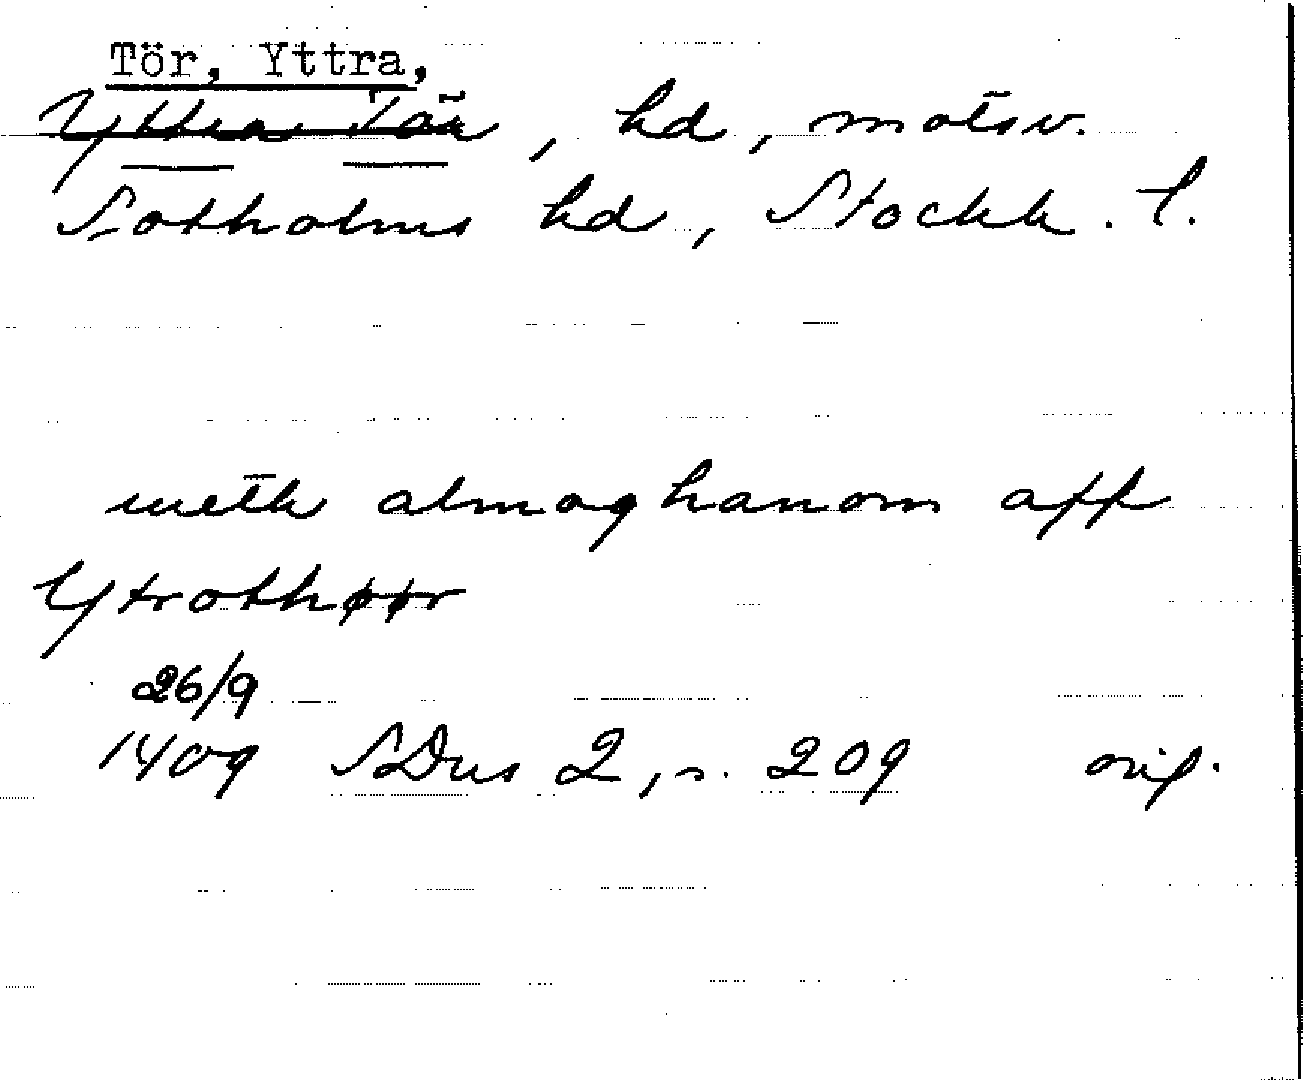 Tör, Yttra,
Yttra Tör, hd, motsv.
Sotholms hd, Stockh. l.
meth almoghanom aff
Ytrothøør
26/9
1409 SDns 2, s. 209 orig.